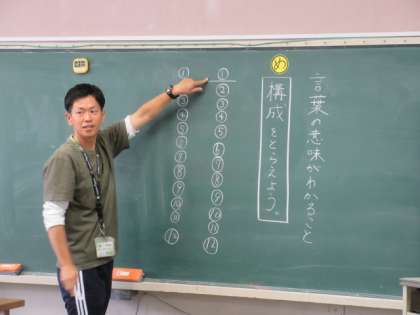 言葉の意味がわかること
め
構成をとらえよう。
① ② ③ ④ ⑤ ⑥ ⑦ ⑧ ⑨ ⑩ ⑪ ⑫
① ② ③ ④ ⑤ ⑥ ⑦ ⑧ ⑨ ⑩ ⑪ ⑫